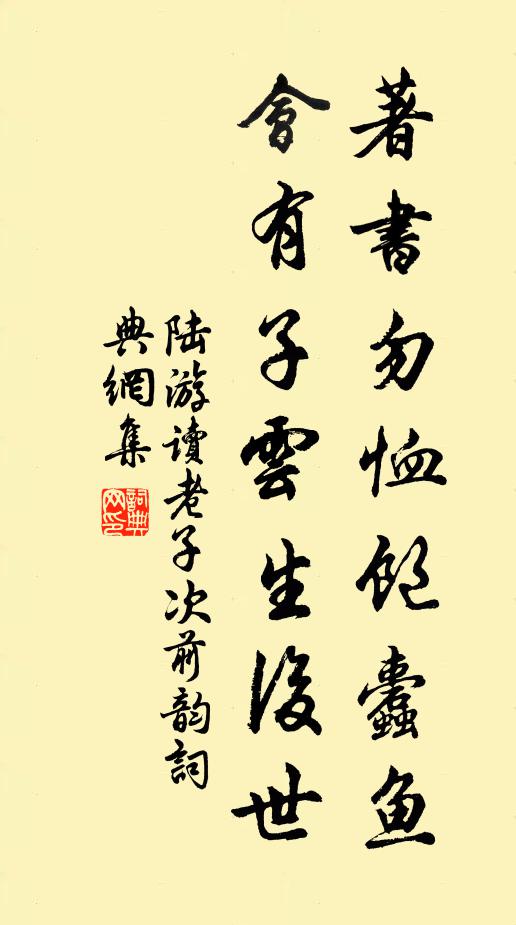 著書勿恤飽蠹魚
會有子雲生後世
陸游讀老子次前韵詞
典網集
詞典網印